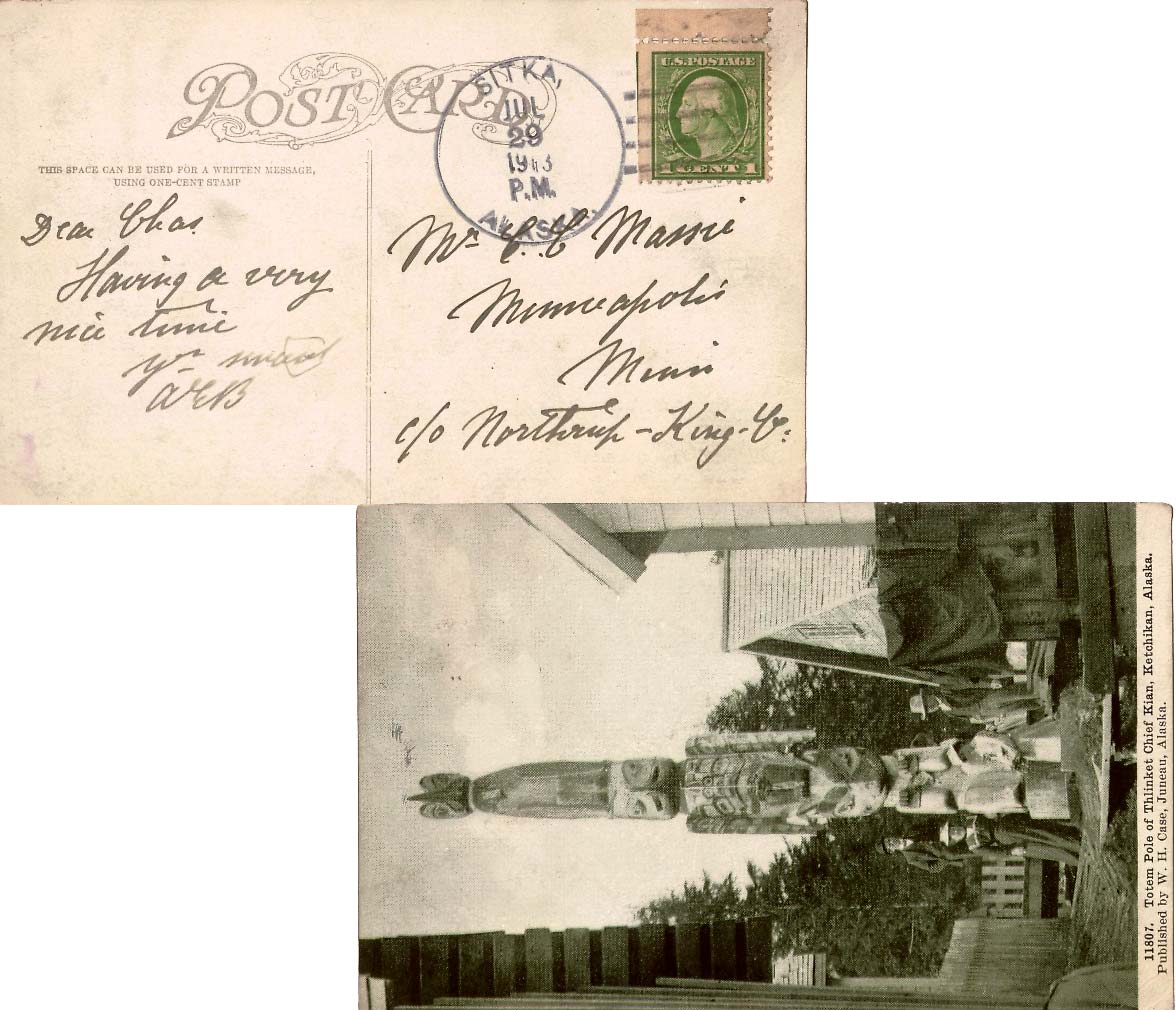 POST CARD
SITKA,
JUL
29
1913
P.M.
ALASKA.
U.S. POSTAGE
1 CENT 1
THIS SPACE CAN BE USED FOR A WRITTEN MESSAGE,
USING ONE-CENT STAMP
Dear Chas.
Having a very
nice time
yr
AEB
Mr C. C Massie
Minneapolis
Minn
c/o Northrup-King-Co.
11807. Totem Pole of Thlinket Chief Kian, Ketchikan, Alaska.
Published by W. H. Case, Juneau, Alaska.